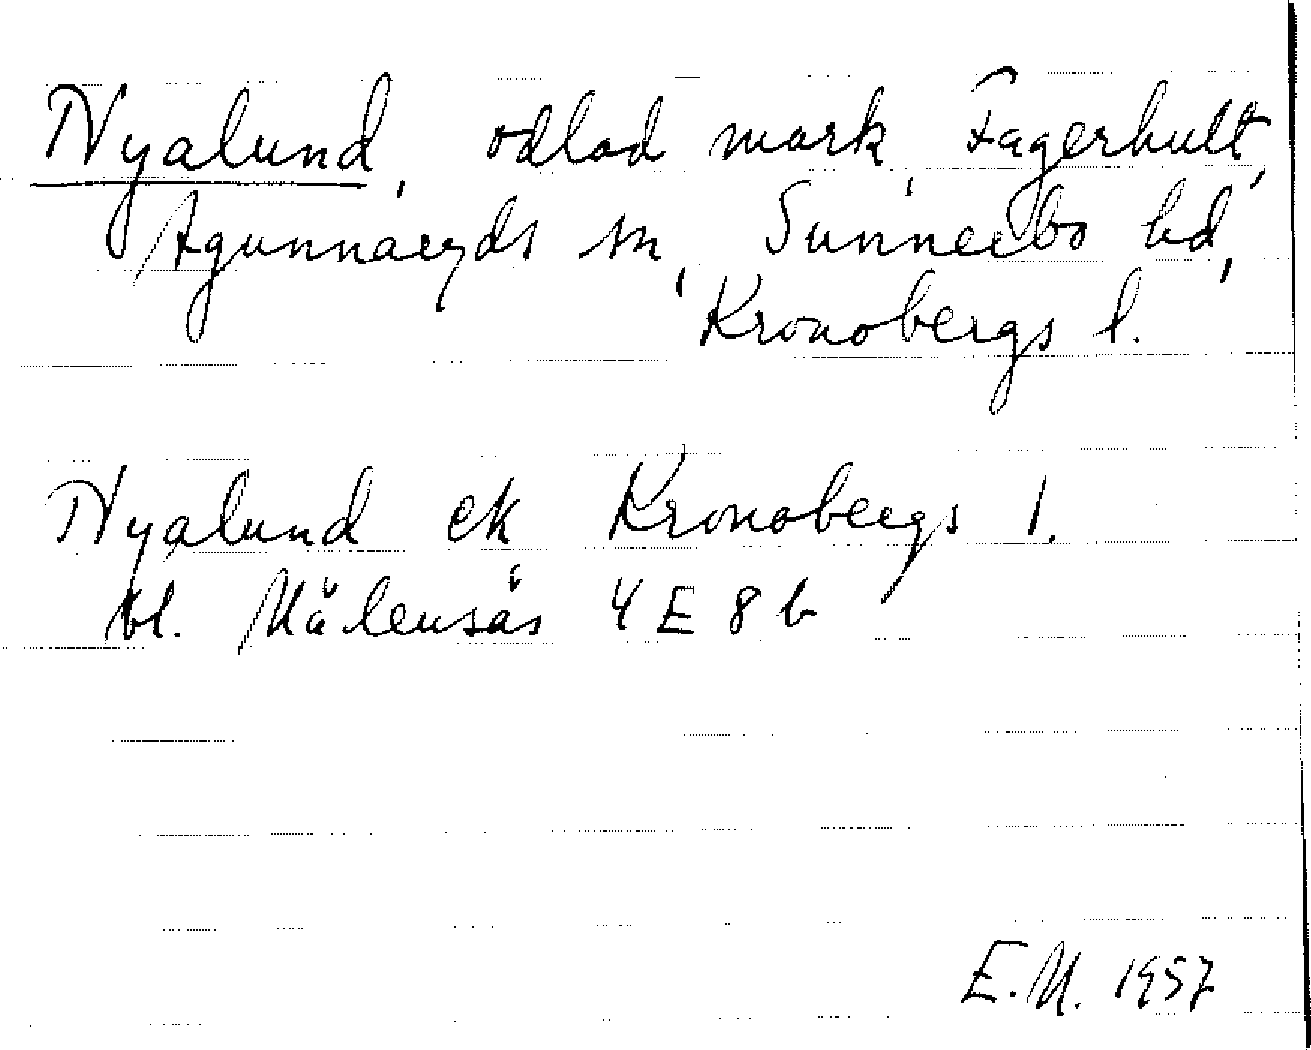 Nyalund, odlad mark, Fagerhult,
Agunnaryds sn, Sunnerbo hd,
Kronobergs l.
Nyalund ek Kronobergs l.
bl. Målensås 4 E 8 b
E.M. 1957